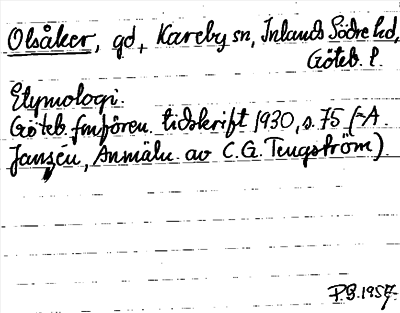 Olsåker, gd, Kareby sn, Inlands Södre hd,
Göteb. l.
Etymologi.
Göteb. fmfören. tidskrift 1930, s. 75 (~A.
Janzén, Anmäln. av C.G. Tengström).
P.B. 1957